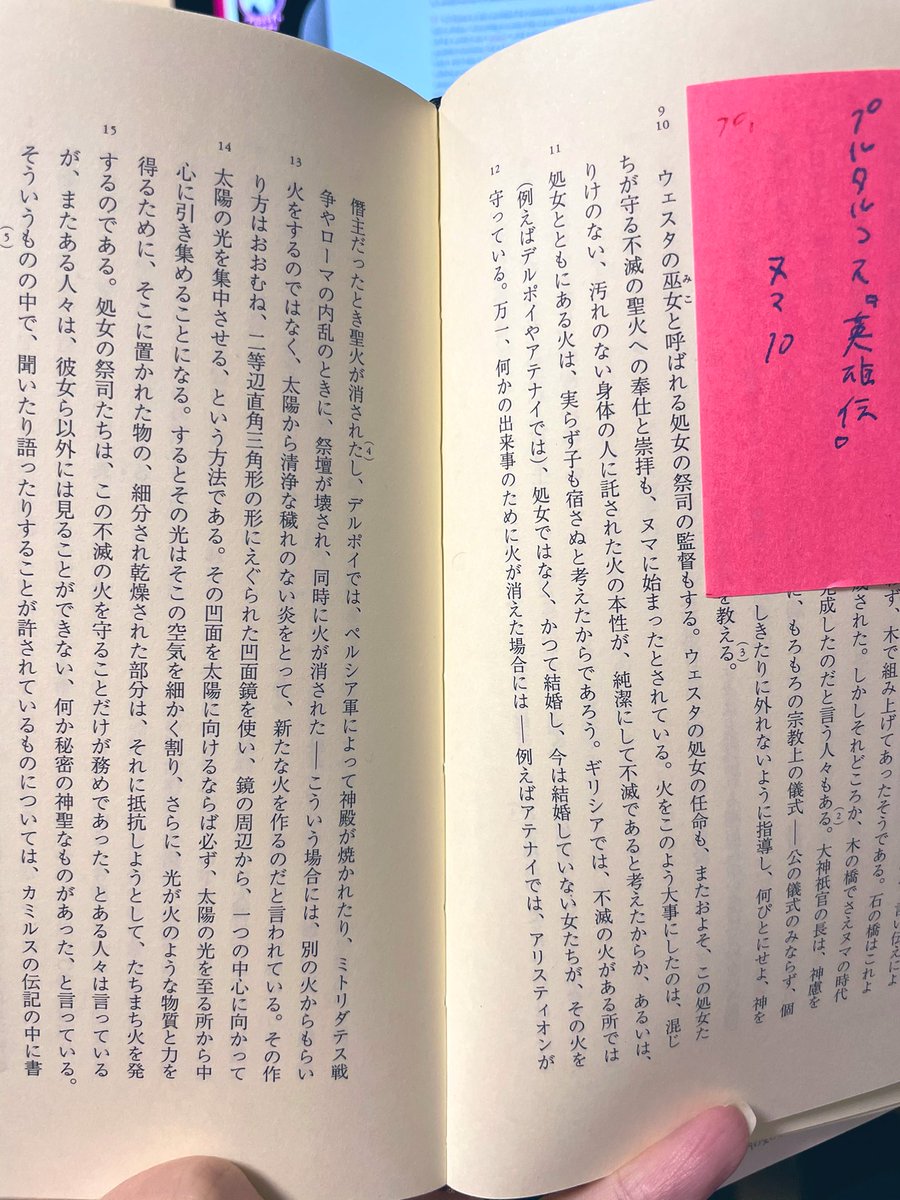 プルタルコス『英雄伝』
ヌマ 10
ず、木で組み上げてあったそうである。石の橋はこれよ
された。しかしそれどころか、木の橋でさえヌマの時代
完成したのだと言う人々もある。(2)大神祇官の長は、神慮を
に、もろもろの宗教上の儀式――公の儀式のみならず、個
しきたりに外れないように指導し、何ぴとにせよ、神を
を教える。(3)
9
10
ウェスタの巫女(みこ)と呼ばれる処女の祭司の監督もする。ウェスタの処女の任命も、またおよそ、この処女た
ちが守る不滅の聖火への奉仕と崇拝も、ヌマに始まったとされている。火をこのよう大事にしたのは、混じ
りけのない、汚れのない身体の人に託された火の本性が、純潔にして不滅であると考えたからか、あるいは、
11
処女とともにある火は、実らず子も宿さぬと考えたからであろう。ギリシアでは、不滅の火がある所では
(例えばデルポイやアテナイでは)、処女ではなく、かつて結婚し、今は結婚していない女たちが、その火を
12
守っている。万一、何かの出来事のために火が消えた場合には――例えばアテナイでは、アリスティオンが
僭主だったとき聖火が消された(4)し、デルポイでは、ペルシア軍によって神殿が焼かれたり、ミトリダテス戦
争やローマの内乱のときに、祭壇が壊され、同時に火が消された――こういう場合には、別の火からもらい
13
火をするのではなく、太陽から清浄な穢れのない炎をとって、新たな火を作るのだと言われている。その作
り方はおおむね、二等辺直角三角形の形にえぐられた凹面鏡を使い、鏡の周辺から、一つの中心に向かって
14
太陽の光を集中させる、という方法である。その凹面を太陽に向けるならば必ず、太陽の光を至る所から中
心に引き集めることになる。するとその光はそこの空気を細かく割り、さらに、光が火のような物質と力を
得るために、そこに置かれた物の、細分され乾燥された部分は、それに抵抗しようとして、たちまち火を発
15
するのである。処女の祭司たちは、この不滅の火を守ることだけが務めであった、とある人々は言っている
が、またある人々は、彼女ら以外には見ることができない、何か秘密の神聖なものがあった、と言っている。
そういうものの中で、聞いたり語ったりすることが許されているものについては、カミルスの伝記の中に書
(5)